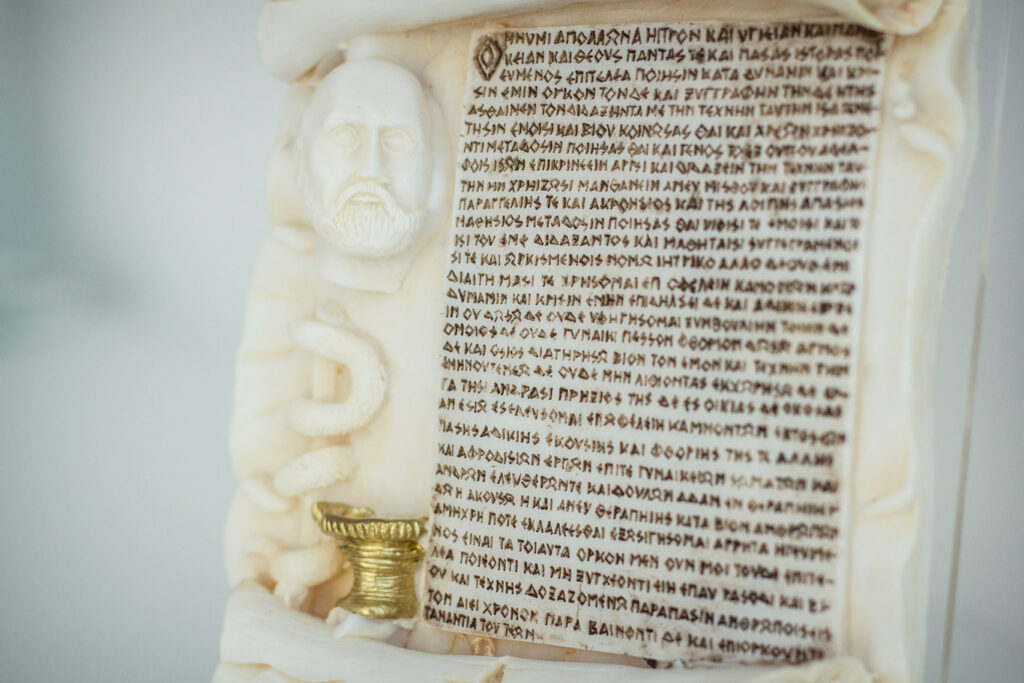 ΟΜΝΥΜΙ ΑΠΟΛΛΩΝΑ ΙΗΤΡΟΝ ΚΑΙ ΥΓΙΕΙΑΝ ΚΑΙ
ΚΕΙΑΝ ΚΑΙ ΘΕΟΥΣ ΠΑΝΤΑΣ ΤΕ ΚΑΙ ΠΑΣΑΣ ΙΣΤΟΡΑΣ ΠΟΙ
ΕΥΜΕΝΟΣ ΕΠΙΤΕΛΕΑ ΠΟΙΗΣΙΝ ΚΑΤΑ ΔΥΝΑΜΙΝ ΚΑΙ ΚΡΙ-
ΣΙΝ ΕΜΙΝ ΟΡΚΟΝ ΤΟΝΔΕ ΚΑΙ ΞΥΓΓΡΑΦΗΝ ΤΗΝΔΕ
ΤΟΝ ΔΙΔΑΞΑΝΤΑ ΜΕ ΤΗΝ ΤΕΧΝΗΝ ΤΑΥΤΗΝ ΙΣΑ
ΤΗΣΙΝ ΕΝΟΙΣΙ ΚΑΙ ΒΙΟΥ ΚΟΙΝΩΣΑΣΘΑΙ ΚΑΙ ΧΡΕΩΝ
ΝΤΙ ΜΕΤΑΔΟΣΙΝ ΠΟΙΗΣΑΣΘΑΙ ΚΑΙ ΓΕΝΟΣ ΤΟ ΕΞ ΟΥΤΟΥ ΑΔΕΛ-
ΦΟΙΣ ΙΣΩΝ ΕΠΙΚΡΙΝΕΕΙΝ ΑΡΡΣΙ ΚΑΙ ΔΙΔΑΞΕΙΝ ΤΗΝ ΤΕΧΝΗΝ ΤΑΥ-
ΤΗΝ ΗΝ ΧΡΗΙΖΩΣΙ ΜΑΝΘΑΝΕΙΝ ΑΝΕΥ ΜΙΣΘΟΥ ΚΑΙ ΞΥΓΓΡΑΦΗΣ
ΠΑΡΑΓΓΕΛΙΗΣ ΤΕ ΚΑΙ ΑΚΡΟΗΣΙΟΣ ΚΑΙ ΤΗΣ ΛΟΙΠΗΣ ΑΠΑΣΗΣ
ΜΑΘΗΣΙΟΣ ΜΕΤΑΔΟΣΙΝ ΠΟΙΗΣΑΣΘΑΙ ΥΙΟΙΣΙ ΤΕ ΕΜΟΙΣΙ ΚΑΙ ΤΟ
ΙΣΙ ΤΟΥ ΕΜΕ ΔΙΔΑΞΑΝΤΟΣ ΚΑΙ ΜΑΘΗΤΑΙΣΙ ΣΥΓΓΕΓΡΑΜΕΝΟΙ
ΣΙ ΤΕ ΚΑΙ ΩΡΚΙΣΜΕΝΟΙΣ ΝΟΜΩ ΙΗΤΡΙΚΟ ΑΛΛΩ ΔΕ ΟΥΔΕΝΙ
ΔΙΑΙΤΗΜΑΣΙ ΤΕ ΧΡΗΣΟΜΑΙ ΕΠ ΩΦΕΛΕΙΗ ΚΑΜΝΟΝΤΩΝ ΚΑΤΑ
ΔΥΝΑΜΙΝ ΚΑΙ ΚΡΙΣΙΝ ΕΜΗΝ ΕΠΙ ΔΗΛΗΣΕΙ ΔΕ ΚΑΙ ΑΔΙΚΙΗ
ΙΝ ΟΥ ΔΩΣΩ ΔΕ ΟΥΔΕ ΥΦΗΓΗΣΟΜΑΙ ΞΥΜΒΟΥΛΙΗΝ ΤΟΙΗΝΔΕ
ΟΜΟΙΩΣ ΔΕ ΟΥΔΕ ΓΥΝΑΙΚΙ ΠΕΣΣΟΝ ΦΘΟΡΙΟΝ ΔΩΣΩ ΑΓΝΩΣ
ΔΕ ΚΑΙ ΟΣΙΩΣ ΔΙΑΤΗΡΗΣΩ ΒΙΟΝ ΤΟΝ ΕΜΟΝ ΚΑΙ ΤΕΧΝΗΝ ΤΗΝ
ΔΕ ΟΥΔΕ ΜΗΝ ΛΙΘΙΟΝΤΑΣ ΕΚΧΩΡΗΣΩ ΔΕ
ΓΑ ΤΗΣΙ ΑΝΔΡΑΣΙ ΠΡΗΞΙΟΣ ΤΗΣ ΔΕ ΕΣ ΟΙΚΙΑΣ ΔΕ ΟΚΟΣΑΣ
ΑΝ ΕΣΙΩ ΕΣΕΛΕΥΣΟΜΑΙ ΕΠ ΩΦΕΛΕΙΗ ΚΑΜΝΟΝΤΩΝ ΕΚΤΟΣ ΕΩΝ
ΠΑΣΗΣ ΑΔΙΚΙΗΣ ΕΚΟΥΣΙΗΣ ΚΑΙ ΦΘΟΡΙΗΣ ΤΗΣ ΤΕ ΑΛΛΗΣ
ΚΑΙ ΑΦΡΟΔΙΣΙΩΝ ΕΡΓΩΝ ΕΠΙ ΤΕ ΓΥΝΑΙΚΕΙΩΝ ΣΩΜΑΤΩΝ ΚΑΙ
ΑΝΔΡΩΝ ΕΛΕΥΘΕΡΩΝ ΤΕ ΚΑΙ ΔΟΥΛΩΝ ΕΝ ΘΕΡΑΠΗΙΗΙ
Η ΑΚΟΥΣΩ Η ΚΑΙ ΑΝΕΥ ΘΕΡΑΠΗΙΗΣ ΚΑΤΑ ΒΙΟΝ ΑΝΘΡΩΠΩΝ
ΑΜΗΧΡΗ ΠΟΤΕ ΕΚΛΑΛΕΕΣΘΑΙ ΕΞΩ ΣΙΓΗΣΟΜΑΙ ΑΡΡΗΤΑ ΗΓΕΥΜΕ-
ΝΟΣ ΕΙΝΑΙ ΤΑ ΤΟΙΑΥΤΑ ΟΡΚΟΝ ΜΕΝ ΟΥΝ ΜΟΙ ΤΟΝΔΕ ΕΠΙΤΕ-
ΛΕΑ ΠΟΙΕΟΝΤΙ ΚΑΙ ΜΗ ΞΥΓΧΕΟΝΤΙ ΕΙΗ ΕΠΑΥΡΑΣΘΑΙ ΚΑΙ ΒΙ-
ΟΥ ΚΑΙ ΤΕΧΝΗΣ ΔΟΞΑΖΟΜΕΝΩ ΠΑΡΑ ΠΑΣΙΝ ΑΝΘΡΩΠΟΙΣ ΕΙΣ
ΤΟΝ ΑΙΕΙ ΧΡΟΝΟΝ ΠΑΡΑΒΑΙΝΟΝΤΙ ΔΕ ΚΑΙ ΕΠΙΟΡΚΟΥΝΤΙ
ΤΑΝΑΝΤΙΑ ΤΟΥΤΩΝ